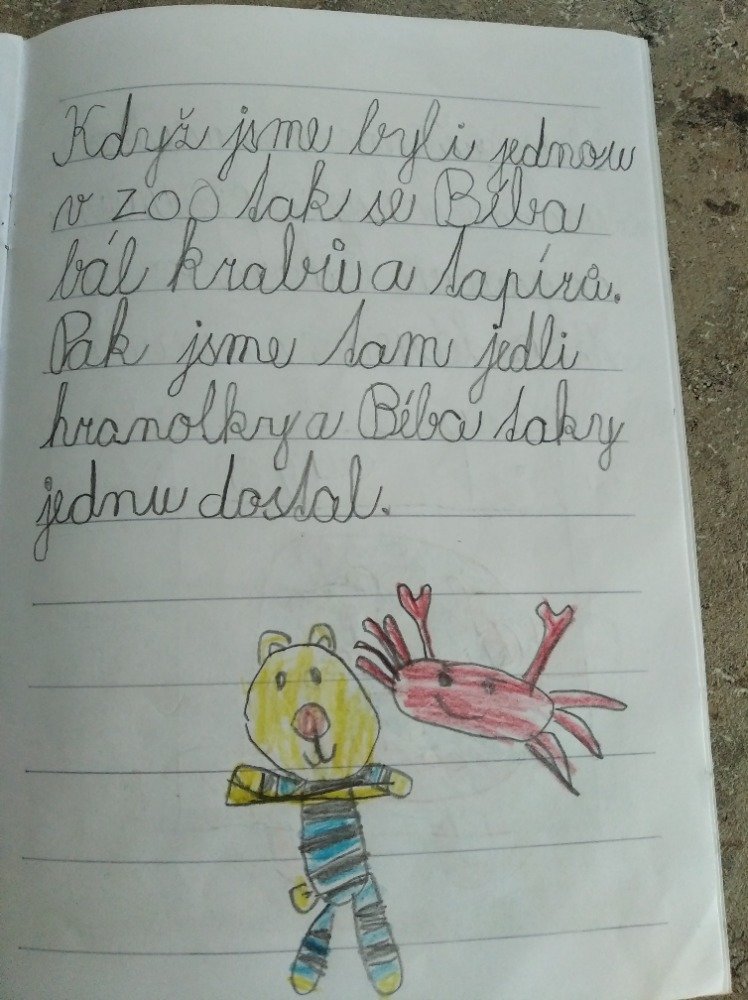 Když jsme byli jednou
v ZOO tak se Béba
bál krabů a tapíra.
Pak jsme tam jedli
hranolky a Béba taky
jednu dostal.